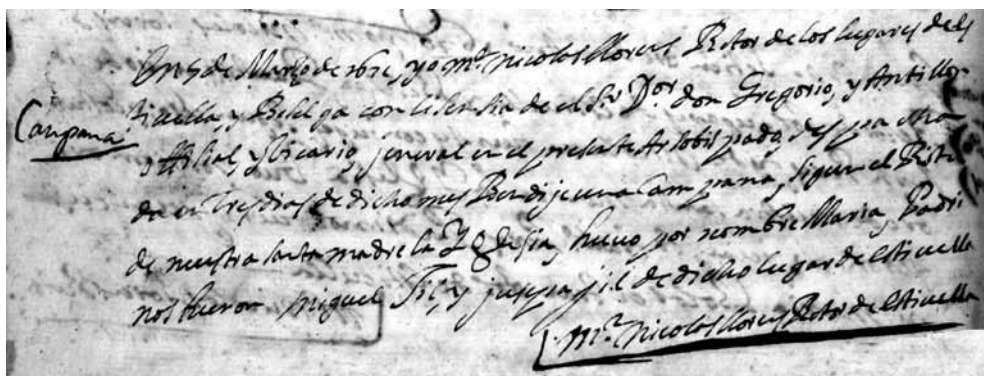 En 5 de Março de yo mº nicolas llorens Retor de los lugares de es
Campana
tiuella, y Beselga con lisensia de el Sr Dor. don Gregorio, y Antillon
offisial, y Vicario jeneral en el presente Arsobispado, despacha
da en tres dias de dicho mes Bendije una Campana, segun el Rito
de nuestra santa madre la Yglesia, huuo por nombre Maria, Padri
nos fueron miguel Gil, y jusepa gil de dicho lugar de estiuella
mº nicolas llorens Retor de estiuella